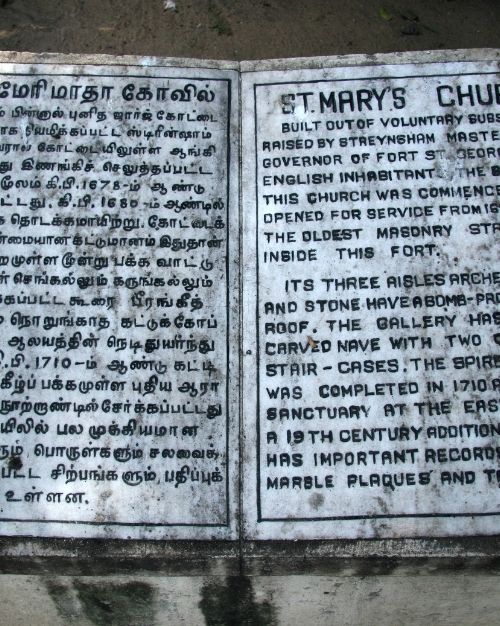 மேரி மாதா கோவில்
பின்னால் புனித ஜார்ஜ் கோட்டை
நியமிக்கப்பட்ட ஸ்டிரீன்ஷாம்
கோட்டையிலுள்ள ஆங்கி
இணங்கிச் செலுத்தப்பட்ட
மூலம் கி.பி.1678-ம் ஆண்டு
கி.பி. 1680-ம் ஆண்டில்
தொடக்கமாயிற்று. கோட்டைக்
கட்டுமானம் இதுதான்
மூன்று பக்க வாட்டு
செங்கல்லும் கருங்கல்லும்
கூரை பீரங்கித்
நொறுங்காத கட்டுக்கோப்
ஆலயத்தின் நெடிதுயர்ந்து
1710-ம் ஆண்டு கட்டி
கீழ்ப் பக்கமுள்ள புதிய ஆரா
நூற்றாண்டில் சேர்க்கப்பட்டது
பல முக்கியமான
பொருள்களும் சலவைக்
சிற்பங்களும், பதிப்புக்
உள்ளன.
ST. MARY'S
BUILT OUT OF VOLUNTARY
RAISED BY STREYNSHAM
GOVERNOR OF FORT ST.
ENGLISH INHABITANT THE
THIS CHURCH WAS
OPENED FOR SERVICE FROM
THE OLDEST MASONRY
INSIDE THIS FORT.
ITS THREE AISLES
AND STONE HAVE A
ROOF. THE GALLERY HAS
CARVED NAVE WITH TWO
STAIR-CASES. THE
WAS COMPLETED IN 1710.
SANCTUARY AT THE
A 19TH CENTURY ADDITION
HAS IMPORTANT
MARBLE PLAQUES AND